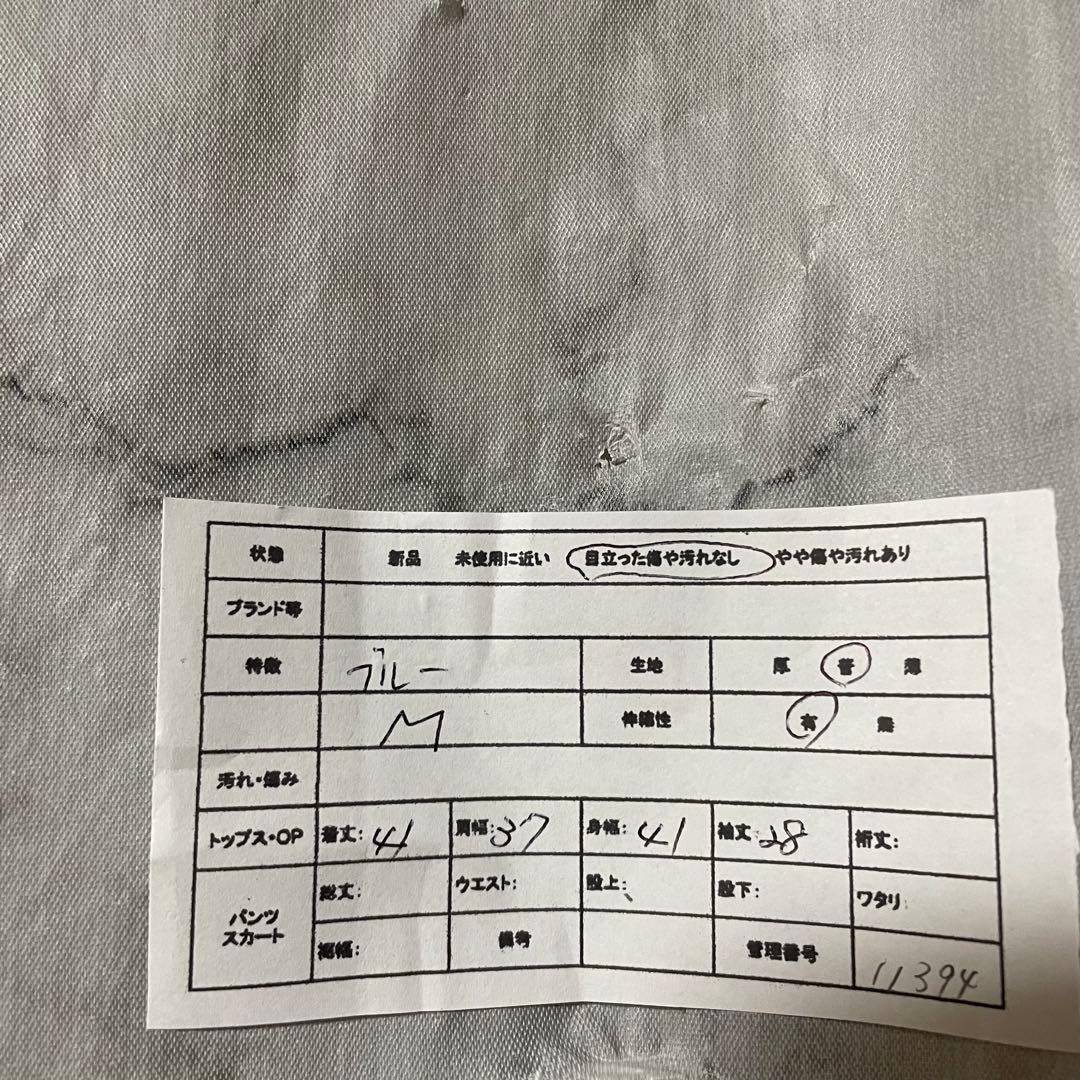 状態 新品 未使用に近い 目立った傷や汚れなし やや傷や汚れあり
ブランド等
特徴 ブルー 生地 厚 普 薄
M 伸縮性 有 無
汚れ・傷み
トップス・OP 着丈: 41 肩幅: 37 身幅: 41 袖丈: 28 裄丈:
パンツ スカート 総丈: ウエスト: 股上: 股下: ワタリ:
裾幅: 備考 管理番号 11394